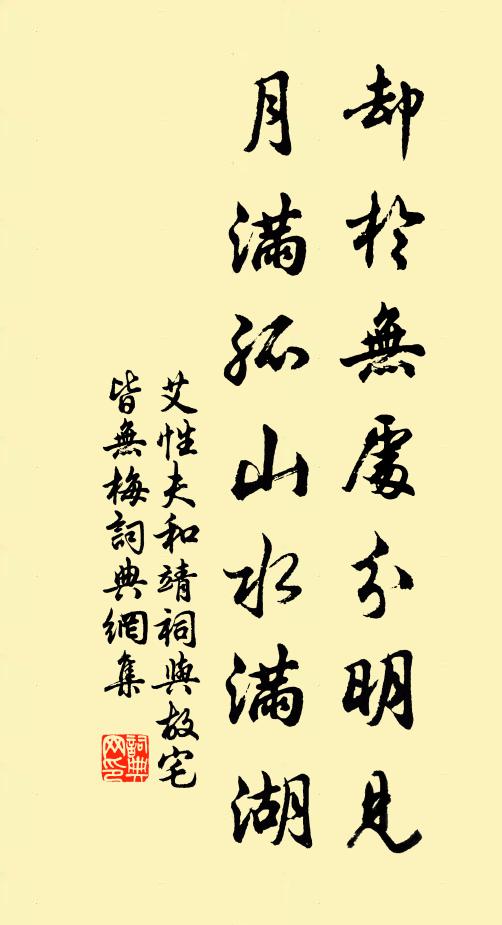 却於無處分明見
月滿孤山水滿湖
艾性夫和靖祠與故宅
皆無梅詞典網集
詞典
网印